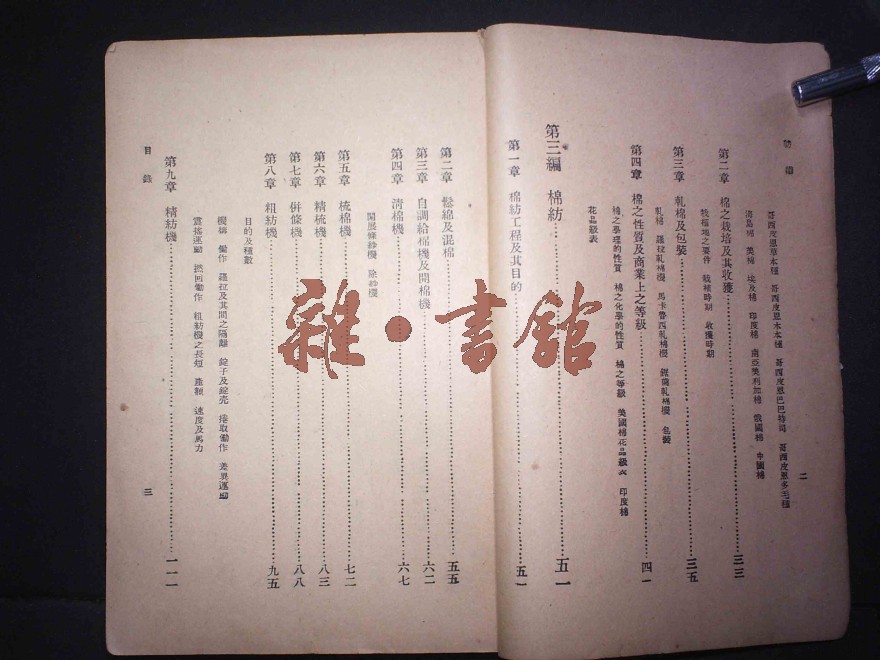 二
哥西皮恩草本種　哥西皮恩木本種　哥西皮恩巴巴特司　哥西皮恩多毛種
海島棉　美棉　埃及棉　印度棉　南亞美利加棉　俄國棉　中國棉
第二章　棉之栽培及其收獲……三三
栽植地之要件　栽植時期　收獲時期
第三章　軋棉及包裝……三五
軋棉　羅拉軋棉機　馬卡魯西軋棉機　鋸齒軋棉機　包裝
第四章　棉之性質及商業上之等級……四一
棉之學理的性質　棉之化學的性質　棉之等級　美國棉花品級表　印度棉
花品級表
第三編　棉紡……五一
第一章　棉紡工程及其目的……五一
第二章　鬆綿及混棉……五五
第三章　自調給棉機及開棉機……六二
第四章　清棉機……六七
開展條紗機　除紗機
第五章　梳棉機……七二
第六章　精梳機……八三
第七章　併條機……八八
第八章　粗紡機……九五
目的及種數
機構　働作　羅拉及其間之隔離　錠子及錠壳　捲取働作　差異運動
震搖運動　撚回働作　粗紡機之長短　產額　速度及馬力
第九章　精紡機……一一一
目錄
三
雜·書館